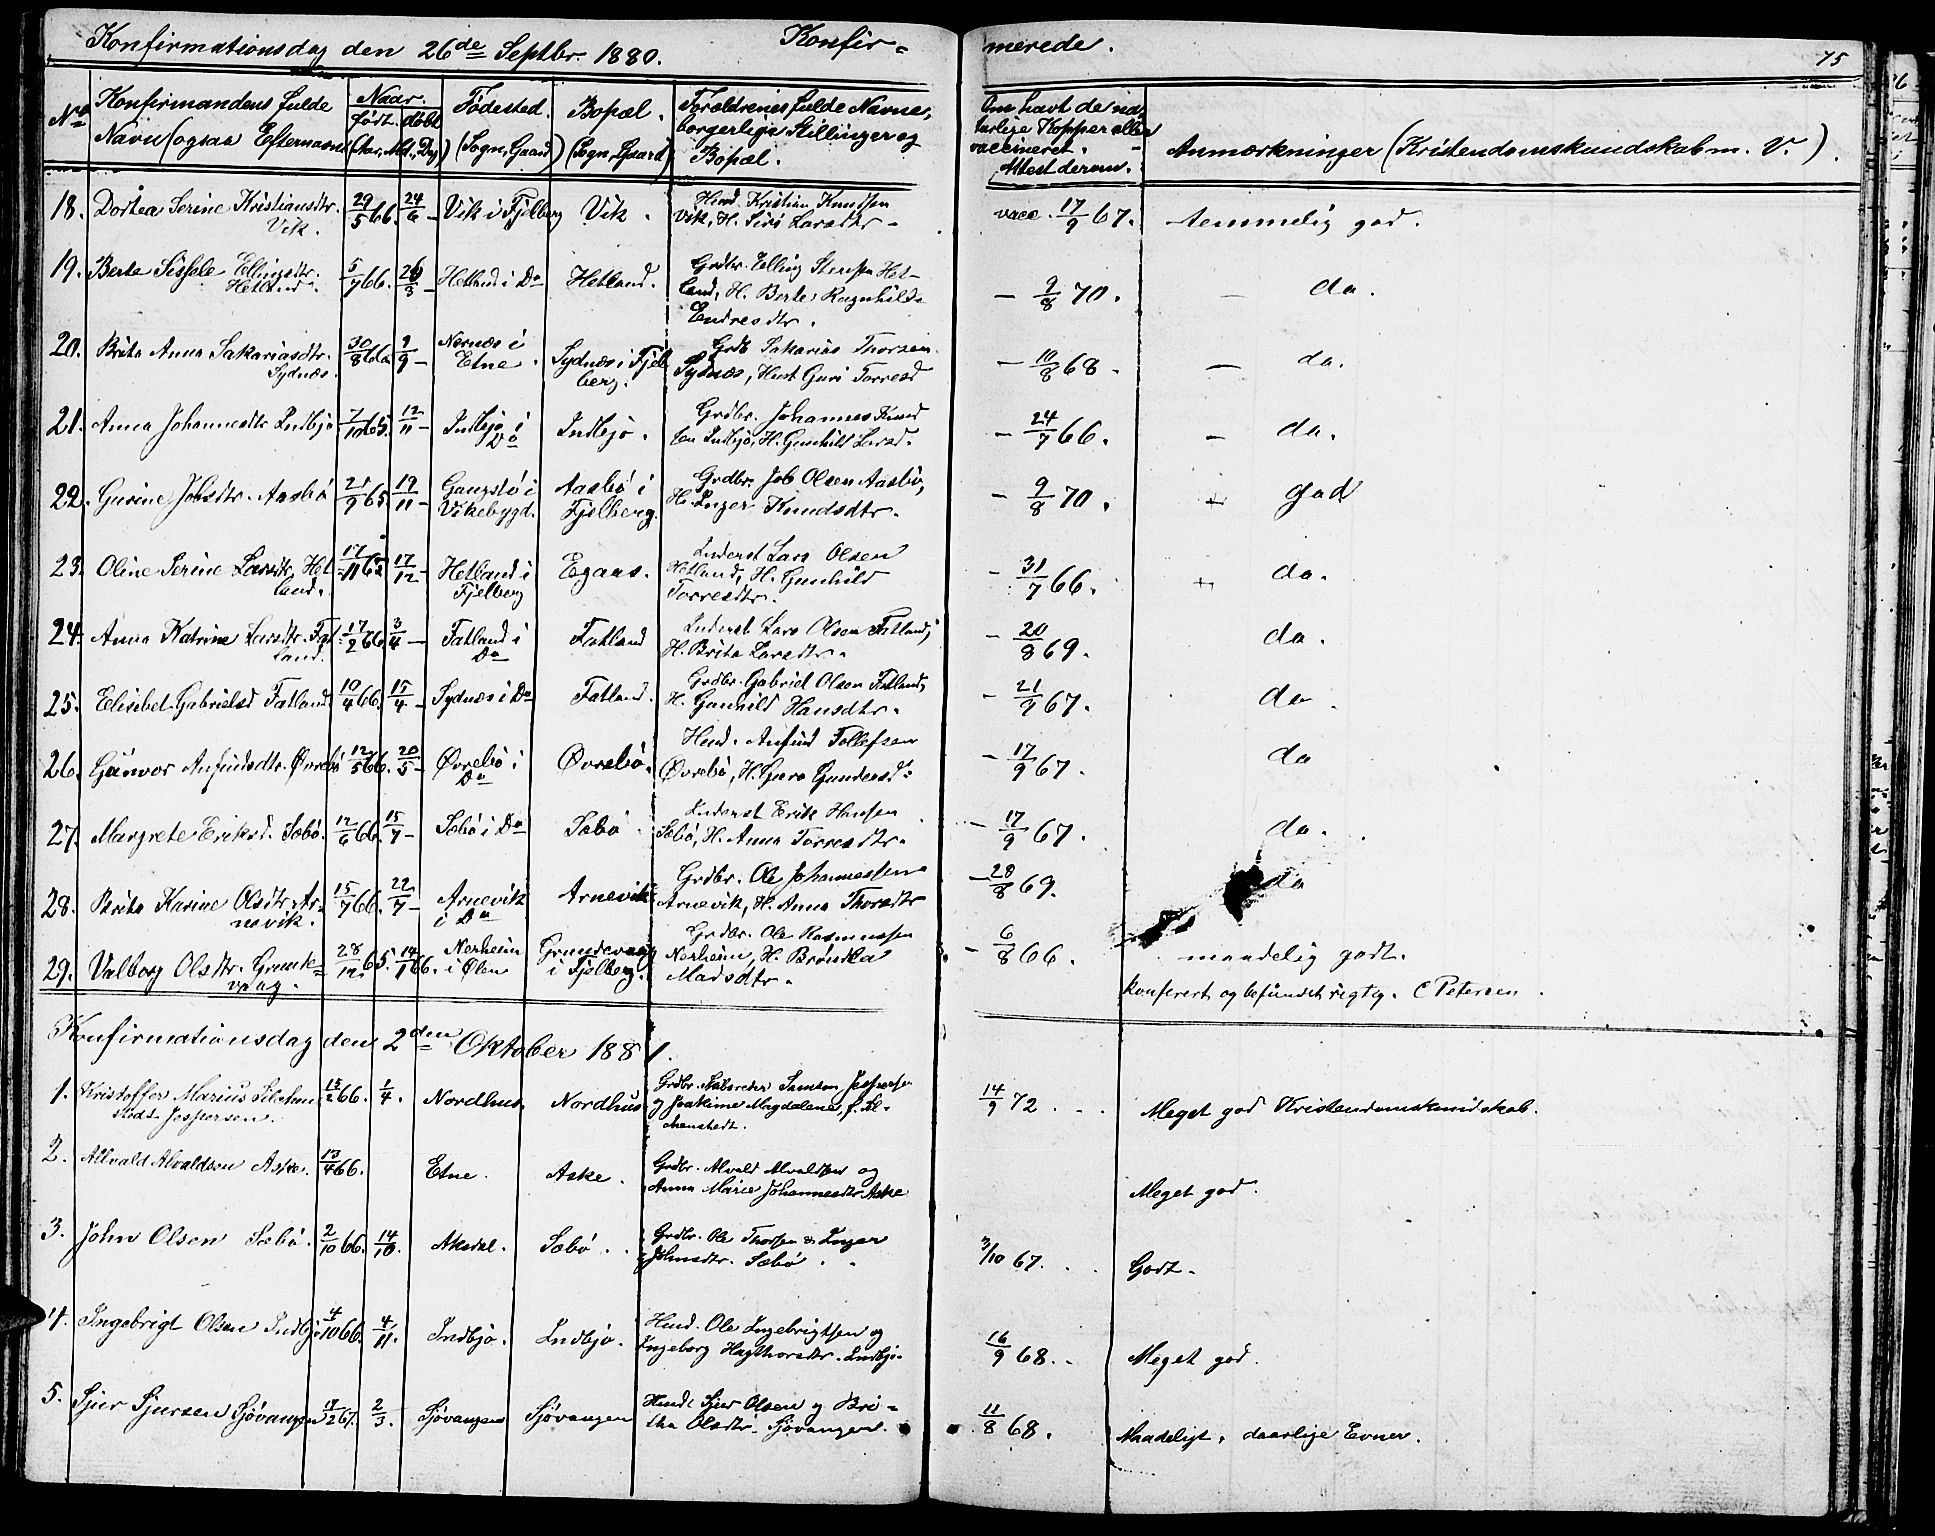 Konfirmationsdag den 26de Septbr. 1880. Konfir- merede. 75
No Konfirmandens fulde Navn (ogsaa Efternavn) Naar født. døbt (Aar, Md., Dag) Fødested. (Sogn, Gaard) Bopæl. (Sogn, Gaard) Forældrenes fulde Navne, borgerlige Stillinger og Bopæl. Om havt de naturlige Kopper eller vaccineret. Attest derom. Anmærkninger (Kristendomskundskab m. V.).
18. Dortea Serine Kristiansdtr. Vik. 29/5 66. 24/6 - Vik i Fjelberg Vik. Husd. Kristian Knudsen Vik, H. Siri Larsdtr - vacc. 17/9 67. temmelig god.
19. Berte Sissele Ellingsdtr. Hetland. 5/7 66. 26/8 - Hetland i Do Hetland. Grdbr. Elling Stensen Hetland, H. Berte Ragnhilds Endresdtr. - 9/8 70. - do.
20. Brita Anna Sakariasdtr. Sydnæs. 30/8 66. 9/9 - Nernæs i Etne. Sydnæs i Fjelberg. Grdb. Sakarias Thorsen Sydnæs, Hust Guri Torresd - 10/8 68. - do.
21. Anna Johannesdtr Indbjo 7/10 65. 12/11 - Indbjo i Do Indbjo. Grdbr. Johannes Knudsen Indbjo, H. Gunhild Larsd. - 24/7 66. - do.
22. Gurine Jobsdtr. Aasbø 21/9 65. 19/11 - Gangstø i Vikebygd. Aasbø i Fjelberg. Grdbr. Job Olsen Aasbø, H. Inger Knudsdtr. - 9/8 70. - god
23. Oline Serine Larsdtr. Hetland. 17/11 65. 17/12 - Hetland i Fjelberg Egaas. Inderst Lars Olsen Hetland, H. Gunhild Torresdtr. - 31/7 66. - do.
24. Anna Katrine Larsdtr. Fatland. 17/2 66. 3/4 - Fatland i Do Fatland Inderst Lars Olsen Fatland, H. Brita Larsdtr. - 20/8 69. do.
25. Elisibet Gabrielsd Fatland 10/4 66. 15/4 - Sydnæs i Do Fatland. Grdbr. Gabriel Olsen Fatland, H. Gunhild Hansdtr. - 21/9 67. do.
26. Gunvor Anfindsdtr. Øvrebø 12/5 66. 20/5 - Øvrebø i Do Øvrebø. Husd. Anfind Tollefsen Øvrebø, H. Guro Gundersd. - 17/9 67. do
27. Margrete Eriksd. Sæbø. 12/6 66. 15/7 - Sæbø i Do Sæbø. Inderst Erik Hansen Sæbø, H. Anna Torresdtr. - 17/9 67. do.
28. Brita Karine Olsdtr. Arnevik. 15/7 66. 22/7 - Arnevik i Do Arnevik. Grdbr. Ole Johannessen Arnevik, H. Anna Thorsdtr - 28/8 69. do
29. Valborg Olsdtr. Grundevaag. 28/12 65. 14/1 66. Norheim i Ølen Grundevaag i Fjelberg. Grdbr. Ole Rasmussen Norheim, H. Brøndla Madsdtr. - 6/8 66. maadelig godt.
konferert og befundet rigtig. C Petersen.
Konfirmationsdag den 2den Oktober 1881.
1. Kristoffer Marius Jespersen. 15/2 66. 1/4. Nordhus. Nordhus Grdbr. Samson Jespersen og Joakime Magdalene, f. 14/9 72. Meget god Kristendomskundskab.
2. Allvald Alvaldsen Aske. 13/4 66. Etne. Aske. Grdbr. Alvald Alvaldsen og Anna Marie Johannesdtr. Aske Meget god.
3. John Olsen Sæbø. 2/10 66. 14/10. Aksdal. Sæbø. Grdbr. Ole Thorsen & Inger Johnsdtr. Sæbø 3/10 67. Godt.
4. Ingebrigt Olsen Indbjo 4/10 66. 4/11. Indbjo. Indbjo. Husd. Ole Ingebrigtsen og Ingeborg Hagthorsdtr. Indbjo. 16/9 68. Meget god.
5. Sjur Sjursen Sjøvangen 14/2 67. 2/3. Sjøvangen Sjøvangen Husd. Sjur Olsen og Britha Olsdtr. Sjøvangen. 11/8 68. Maadeligt, daarlige Evner.